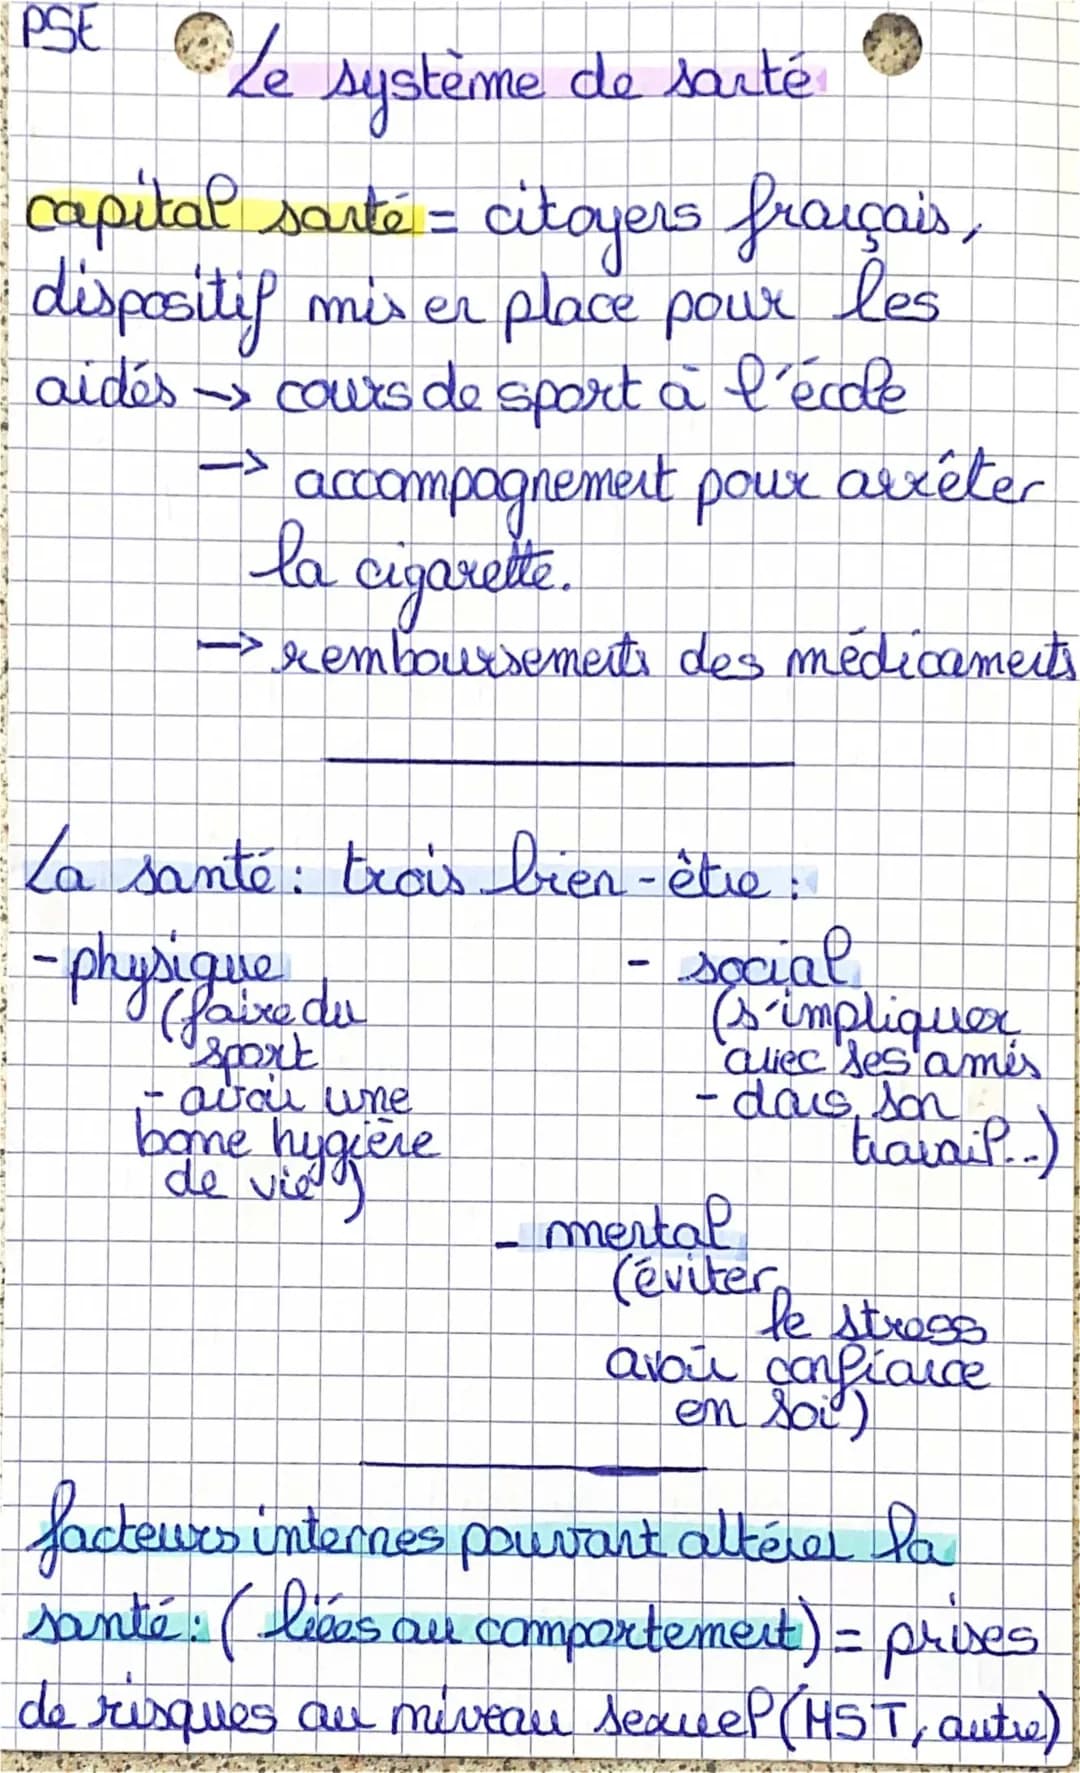 PSE
Le système de santé
capital santé = citoyens français,
dispositif mis en place pour les
aidés -> cours de sport à l'école
-> accompagnement pour arrêter
la cigarette.
-> remboursements des médicaments
La santé : trois bien-être :
- physique
(faire du
sport
- avoir une
bonne hygiène
de vie)
- social
(s'impliquer
avec ses amis
- dans son
travail..)
- mental
(éviter
le stress
avoir confiance
en soi)
facteurs internes pouvant altérer la
santé : (liées au comportement) = prises
de risques au niveau sexuel (MST, autre)